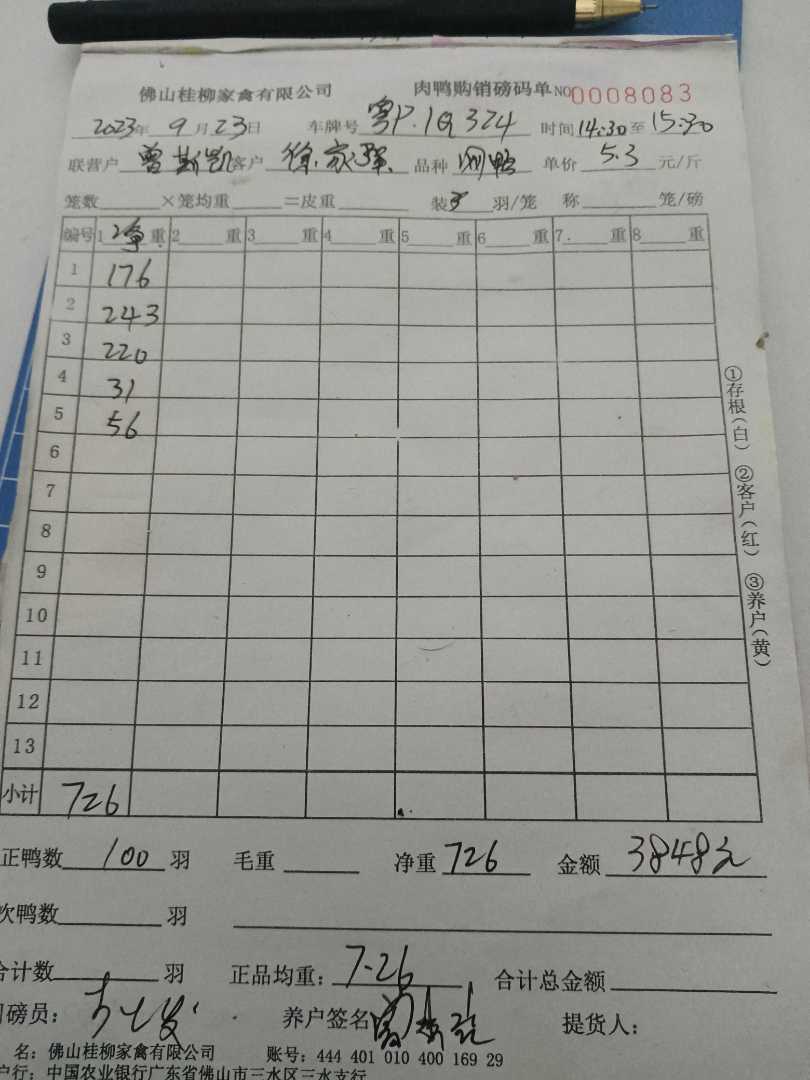 佛山桂柳家禽有限公司 肉鸭购销磅码单 NO 0008083
2023年 9月23日 车牌号 粤P.1Q324 时间14:30至15:30
联营户 曾斯凯 客户 徐家强 品种 网鸭 单价 5.3 元/斤
笼数 ×笼均重 =皮重 装 羽/笼 称 笼/磅
编号 1净重 2 重 3 重 4 重 5 重 6 重 7. 重 8 重
1 176
2 243
3 220
4 31
5 56
6
7
8
9
10
11
12
13
小计 726
①存根(白) ②客户(红) ③养户(黄)
正鸭数 100 羽 毛重 净重 726 金额 3848元
次鸭数 羽
合计数 羽 正品均重: 7.26 合计总金额
磅员: 养户签名 提货人:
名: 佛山桂柳家禽有限公司 账号: 444 401 010 400 169 29
户行: 中国农业银行广东省佛山市三水区三水支行